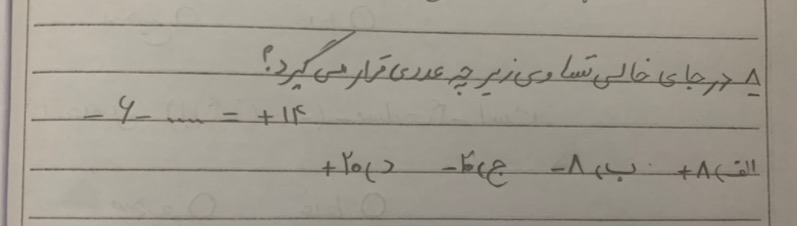 ۸ در جای خالی تساوی زیر چه عددی قرار می گیرد؟
-۶- .... = +۱۴
الف) +۸ ب) -۸ ج) -۲۰ د) +۲۰